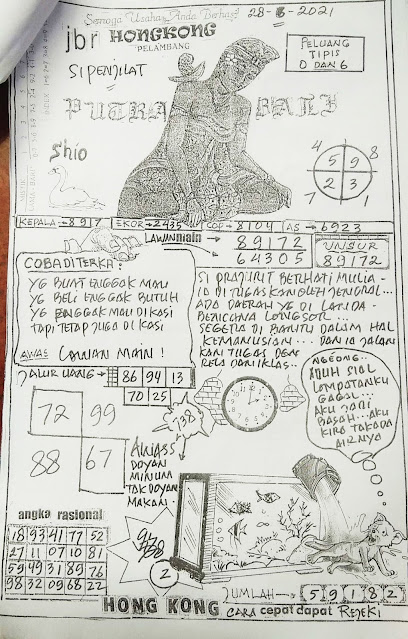 Semoga Usaha Anda Berhasil
28-8-2021
jbr HONGKONG
PELAMBANG
SIPENJILAT
PELUANG
TIPIS
0 DAN 6
PUTRA BALI
Shio
4 5 9 8
7 2 3 1
KEPALA 8917 EKOR 2435 COP 8104 AS 6923
LAWANmain
89172
64305
UNSUR
89172
COBA DITERKA:
YG BUAT ENGGAK MAU
YG BELI ENGGAK BUTUH
YG ENGGAK MAU DIKASI
TAPI TETAP JUGA DI KASI
AWAS LAWAN MAIN!
SI PRAJURIT BERHATI MULIA-
IA DI TUGASKAN OLEH JENGRAL...
ADA DAERAH YG DI LANDA-
BENCCANA LONGSOR...
SEGERA DI BANTU DALIM HAL
KEMANUSIAN... DAN IA JALAN
KAN TUGAS DEN
RELA DAN IKLAS..
JALUR UANG
86 94 13
70 25
NGEONG..
ADUH SIAL
LOMPATANKU
GAGAL...
AKU JADI
BASAH...AKU
KIRA TAKADA
AIRNYA
72 99
88 67
738
AIRNASS
DOYAN
MINUM
TAK DOYAN
MAKAN
2
angka rasional
18 93 41 77 52
27 11 07 10 81
59 49 31 89 76
98 32 09 68 22
JUMLAH 5 9 1 8 2
HONG KONG CARA cepat dapat REJEKI